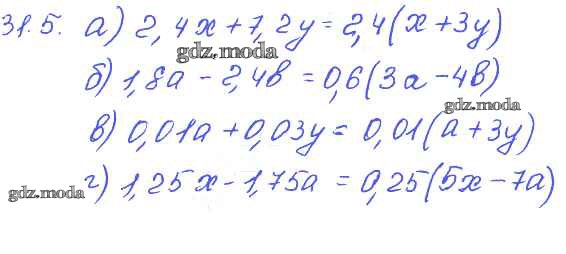 31.5. а) 2,4x + 7,2y = 2,4(x + 3y)
gdz.moda
б) 1,8a - 2,4в = 0,6(3a - 4в)
gdz.moda
в) 0,01a + 0,03y = 0,01(a + 3y)
gdz.moda г) 1,25x - 1,75a = 0,25(5x - 7a)